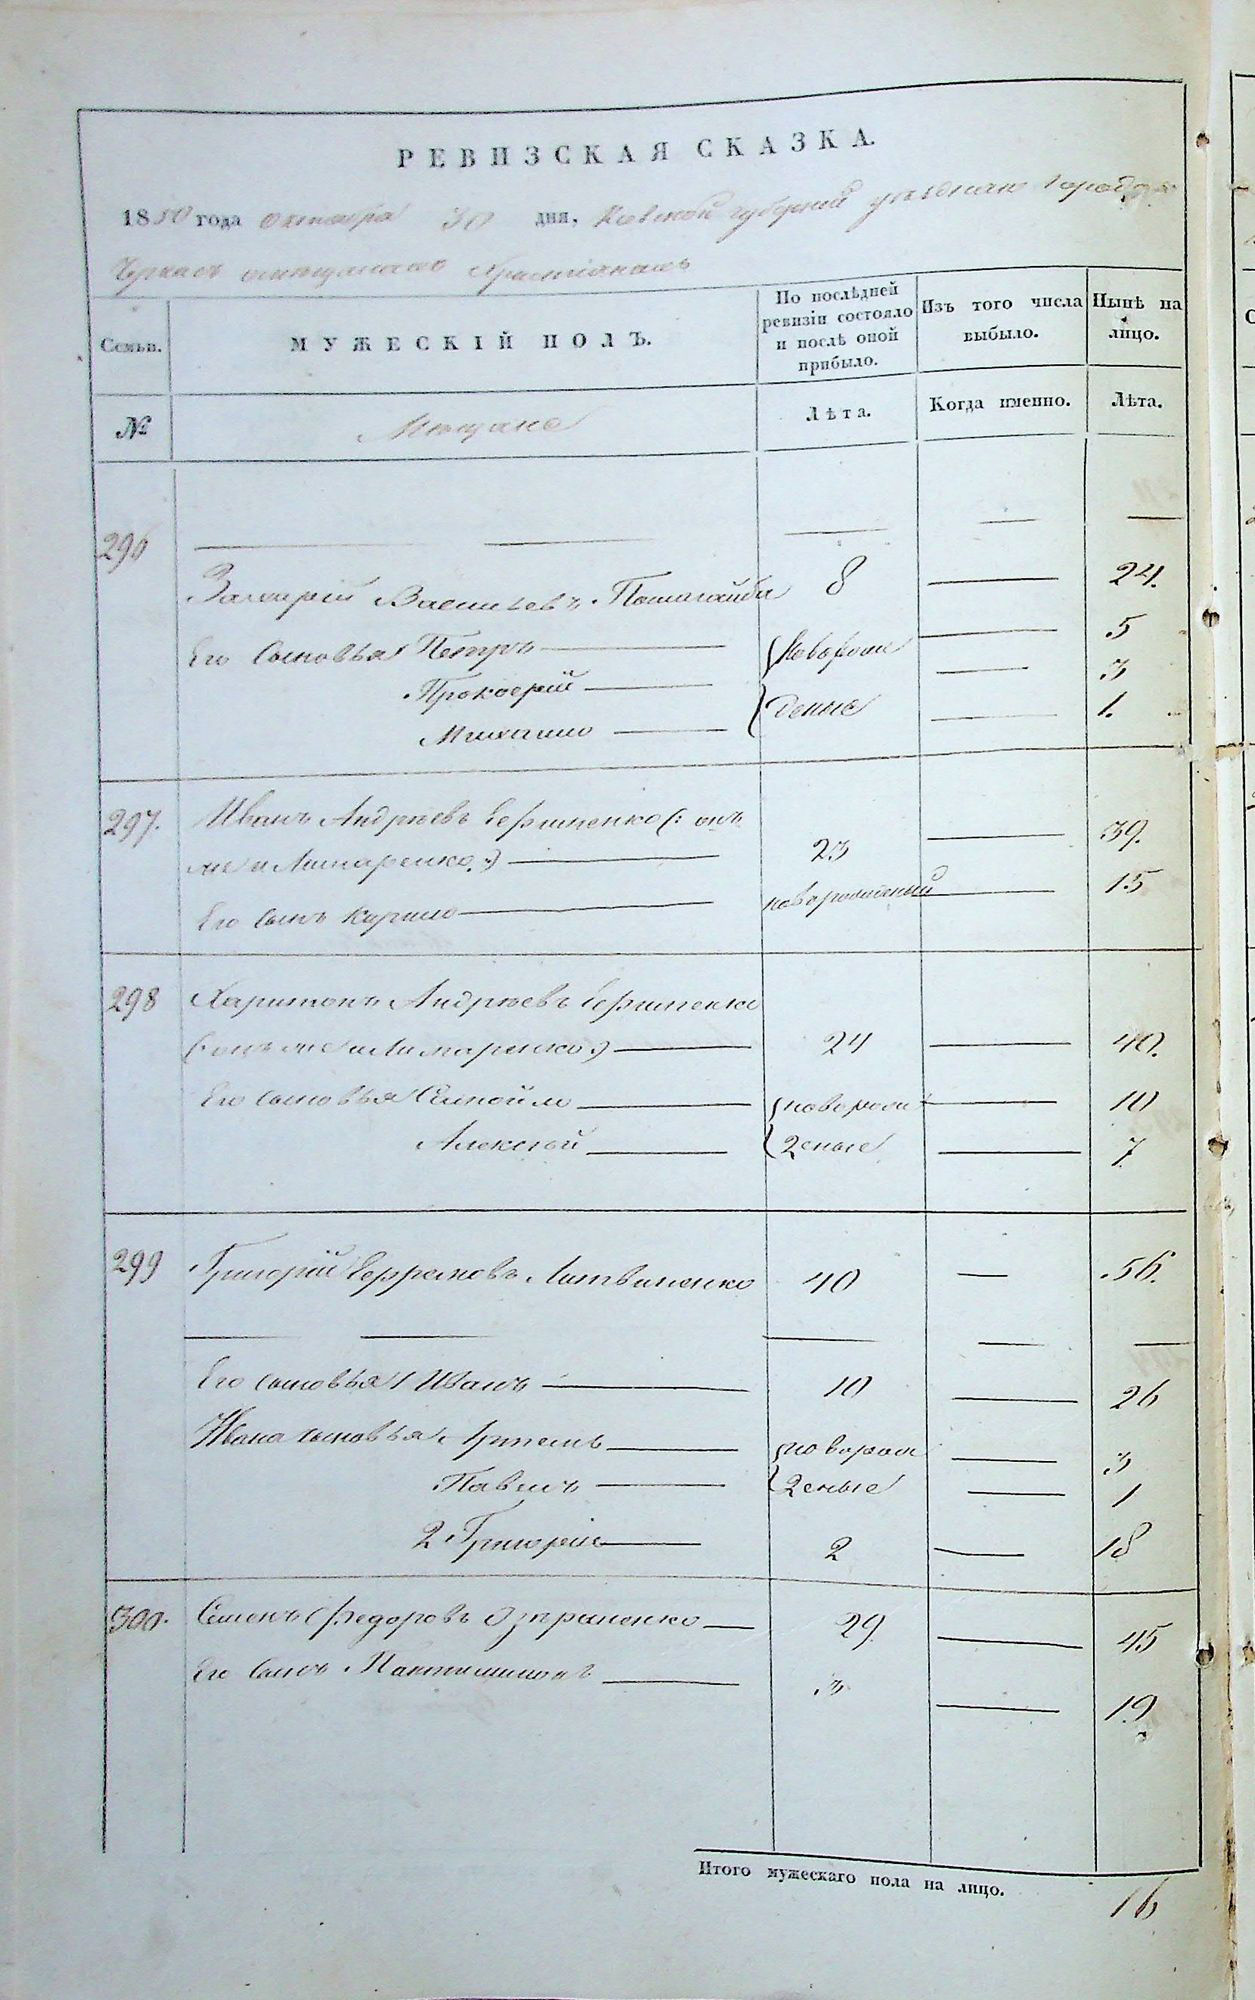 РЕВИЗСКАЯ СКАЗКА.
1850 года октября 30 дня, Кіевской губерніи уѣзднаго города
Черкасъ о мѣщанахъ христіанахъ
Семьи.
МУЖЕСКІЙ ПОЛЪ.
По послѣдней ревизіи состояло и послѣ оной прибыло.
Изъ того числа выбыло.
Нынѣ на лицо.
№
Мѣщане
Лѣта.
Когда именно.
Лѣта.
296
Захарій Васильевъ 8 — 24.
Его сыновья Петръ — новорож — 5
Прокофій — 3
Михайло — денные — 1.
297. Иванъ Андрѣевъ Ефименко (: онъ
же и Лимаренко :) — 23 — 39.
Его сынъ Кирило — новорожденный — 15
298 Харитонъ Андрѣевъ Ефименко
(: онъ же и Лимаренко :) — 24 — 40.
Его сыновья Самойло — новорож — 10
Алексѣй — денные — 7
299 Григорій Ефремовъ Литвиненко 40 — 56.
Его сыновья 1 Иванъ — 10 — 26
Ивана сыновья Артемъ — новорож — 3
Павелъ — денные — 1
2 Григорій — 2 — 18
300. Семенъ Федоровъ — 29 — 45
Его сынъ Пантилимонъ — 3 — 19
Итого мужескаго пола на лицо. 16